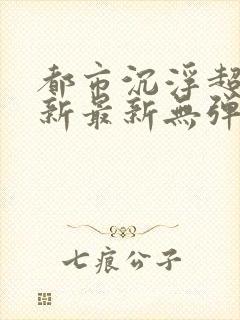 都市沉浮超
新最新無弹
七痕公子